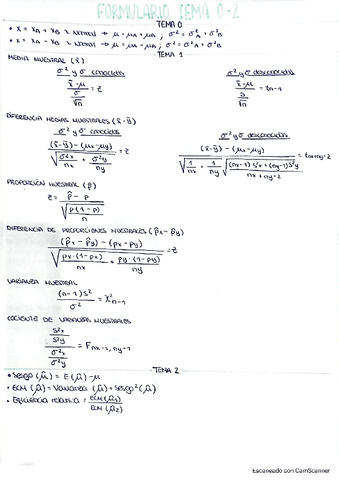 FORMULARIO TEMA 0-2
TEMA 0
• X = XA + XB ~ NORMAL → μ = μA + μB ; σ² = σ²A + σ²B
• X = XA - XB ~ NORMAL → μ = μA - μB ; σ² = σ²A + σ²B
TEMA 1
MEDIA MUESTRAL (x̄)
σ² y σ conocidas
(x̄ - μ) / (σ/√n) = z
σ² y σ desconocidas
(x̄ - μ) / (s/√n) = tn-1
DIFERENCIA MEDIAS MUESTRALES (x̄ - ȳ)
σ² y σ conocidas
((x̄ - ȳ) - (μx - μy)) / √(σ²x/nx + σ²y/ny) = z
σ² y σ desconocidas
((x̄ - ȳ) - (μx - μy)) / (√(1/nx + 1/ny) √(((nx-1) s²x + (ny-1) s²y) / (nx + ny - 2))) = tnx+ny-2
PROPORCIÓN MUESTRAL (p̂)
z = (p̂ - p) / √(p(1-p)/n)
DIFERENCIA DE PROPORCIONES MUESTRALES (p̂x - p̂y)
((p̂x - p̂y) - (px - py)) / √(px·(1-px)/nx + py·(1-py)/ny) = z
VARIANZA MUESTRAL
(n-1) s² / σ² = X²n-1
COCIENTE DE VARIANZAS MUESTRALES
(s²x/s²y) / (σ²x/σ²y) = Fnx-1, ny-1
TEMA 2
• Sesgo (μ̂) = E(μ̂) - μ
• ECM (μ̂) = Varianza (μ̂) + Sesgo² (μ̂)
• Eficiencia relativa = ECM (μ̂1) / ECM (μ̂2)
Escaneado con CamScanner